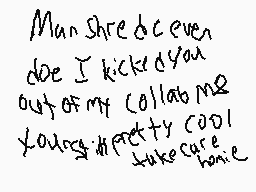 Man Shredc even
doe I kicked you
out of my collab M8
your still pretty cool
take care
homie